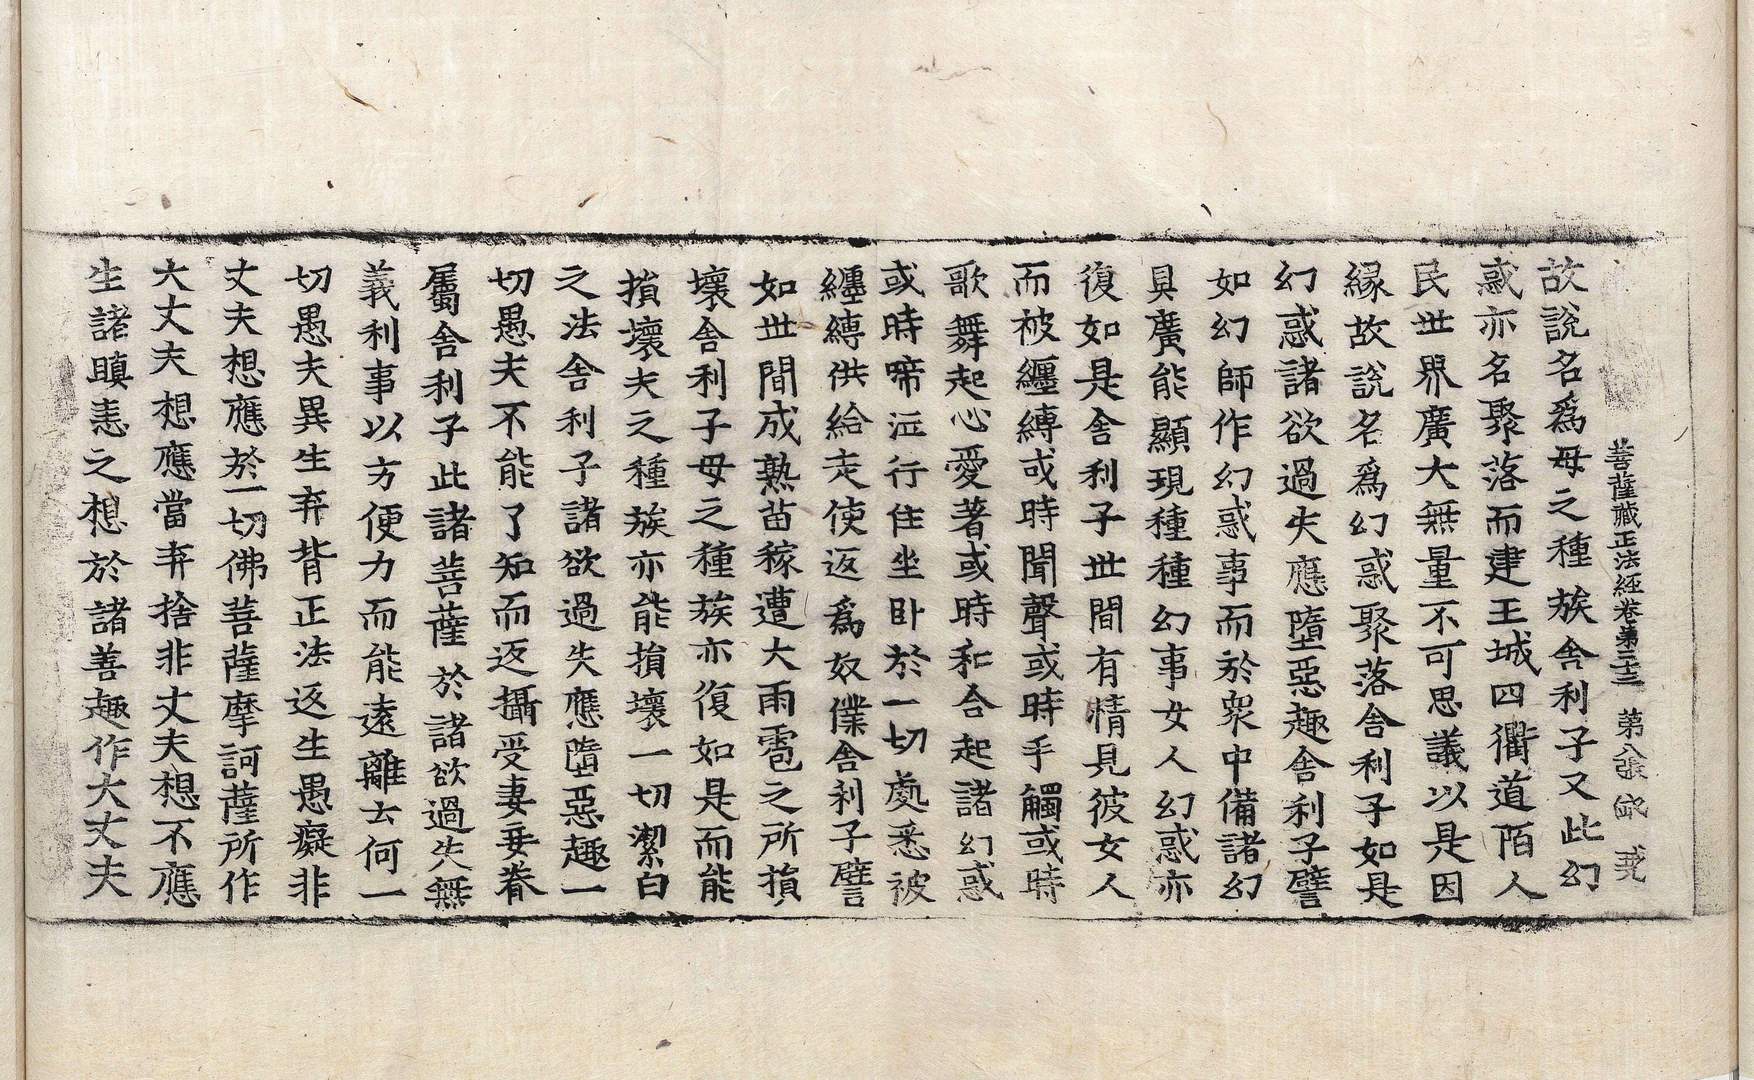 菩薩藏正法經卷第三十三 第八張
故說名爲母之種族舍利子又此幻
惑亦名聚落而建王城四衢道陌人
民世界廣大無量不可思議以是因
縁故說名爲幻惑聚落舍利子如是
幻惑諸欲過失應墮惡趣舍利子譬
如幻師作幻惑事而於衆中備諸幻
具廣能顯現種種幻事女人幻惑亦
復如是舍利子世間有情見彼女人
而被纏縛或時聞聲或時手觸或時
歌舞起心愛著或時和合起諸幻惑
或時啼泣行住坐卧於一切處悉被
纏縛供給走使返爲奴僕舍利子譬
如世間成熟苗稼遭大雨雹之所損
壞舍利子母之種族亦復如是而能
損壞夫之種族亦能損壞一切潔白
之法舍利子諸欲過失應墮惡趣一
切愚夫不能了知而返攝受妻妾眷
屬舍利子此諸菩薩於諸欲過失無
義利事以方便力而能遠離云何一
切愚夫異生弃背正法返生愚癡非
丈夫想應於一切佛菩薩摩訶薩所作
大丈夫想應當弃捨非丈夫想不應
生諸瞋恚之想於諸善趣作大丈夫